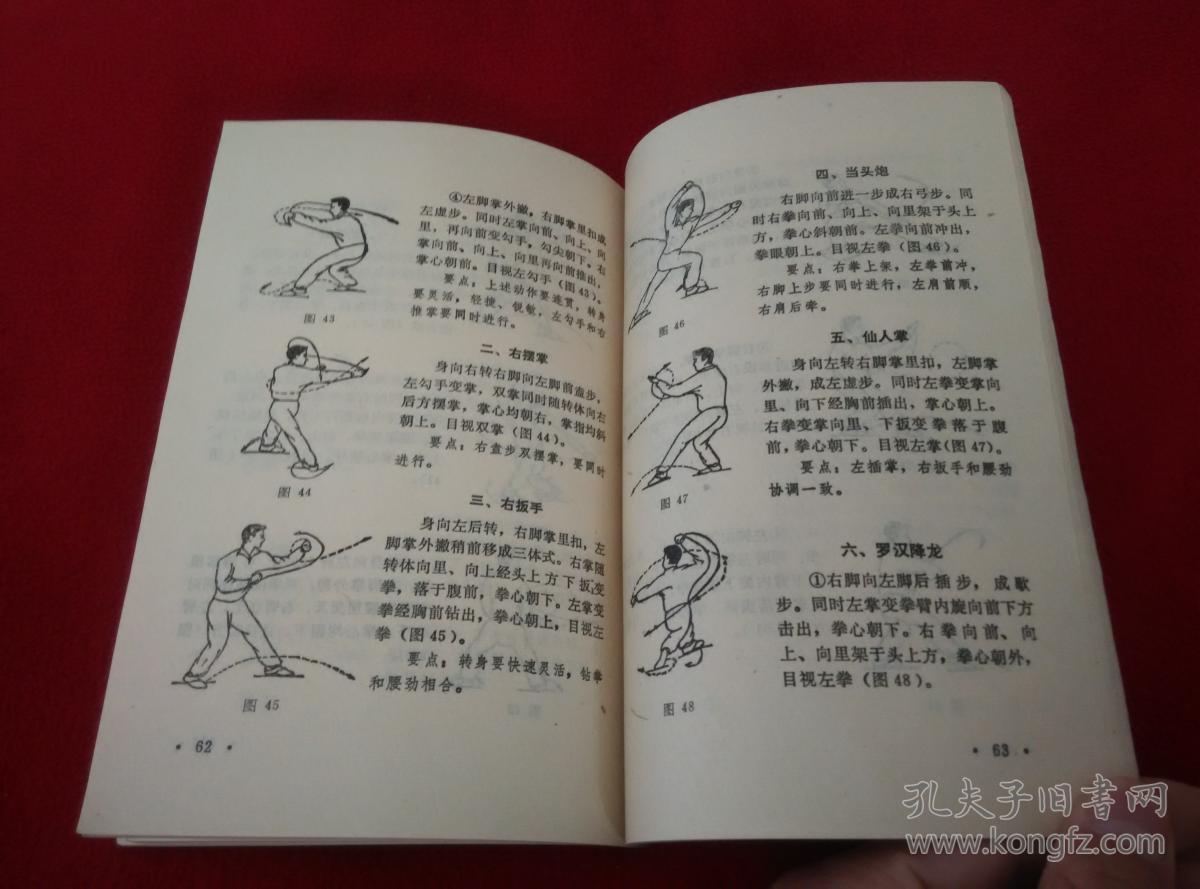 ④左脚掌外撇，右脚掌里扣成
左虚步。同时左掌向前、向上、向
里，再向前变勾手，勾尖朝下。右
掌向前、向上、向里再向前推出，
掌心朝前。目视左勾手（图43）。
要点：上述动作要连贯，转身
要灵活，轻捷、锐敏，左勾手和右
推掌要同时进行。
图 43
二、右摆掌
身向右转右脚向左脚前盖步，
左勾手变掌，双掌同时随转体向右
后方摆掌，掌心均朝右，掌指均斜
朝上。目视双掌（图44）。
要点：右盖步双摆掌，要同时
进行。
图 44
三、右扳手
身向左后转，右脚掌里扣，左
脚掌外撇稍前移成三体式。右掌随
转体向里、向上经头上方下扳变
拳，落于腹前，拳心朝下。左掌变
拳经胸前钻出，拳心朝上，目视左
拳（图45）。
要点：转身要快速灵活，钻拳
和腰劲相合。
图 45
• 62 •
四、当头炮
右脚向前进一步成右弓步。同
时右拳向前、向上、向里架于头上
方，拳心斜朝前。左拳向前冲出，
拳眼朝上。目视左拳（图46）。
要点：右拳上架，左拳前冲，
右脚上步要同时进行，左肩前顺，
右肩后牵。
图 46
五、仙人掌
身向左转右脚掌里扣，左脚掌
外撇，成左虚步。同时左拳变掌向
里、向下经胸前插出，掌心朝上。
右拳变掌向里、下扳变拳落于腹
前，拳心朝下。目视左掌（图47）。
要点：左插掌，右扳手和腰劲
协调一致。
图 47
六、罗汉降龙
①右脚向左脚后插步，成歇
步。同时左掌变拳臂内旋向前下方
击出，拳心朝下。右拳向前、向
上、向里架于头上方，拳心朝外，
目视左拳（图48）。
图 48
• 63 •
孔夫子旧書网
www.kongfz.com